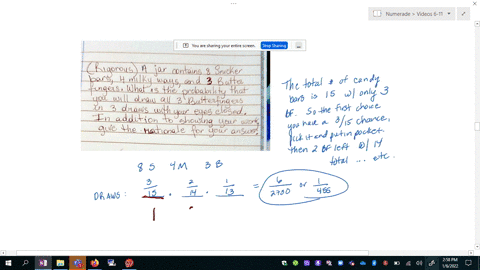 Numerade > Videos 6-11
You are sharing your entire screen.
Stop Sharing
(Rigorous) A jar contains 8 Snicker
bars, 4 milky ways, and 3 Butter
fingers. What is the probability that
you will draw all 3 Butterfingers
in 3 draws with your eyes closed.
In addition to showing your work,
give the rationale for your answer.
The total # of candy
bars is 15 w/ only 3
BF. So the first choice
you have a 3/15 chance,
pick it and put in pocket.
then 2 BF left w/ 14
total ... etc.
8 S 4 M 3 B
DRAWS: 3/15 · 2/14 · 1/13 = 6/2730 or 1/455
1
2:58 PM
1/6/2022